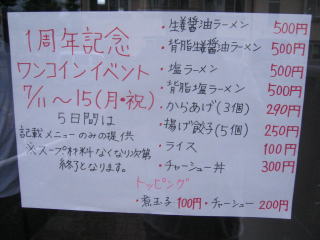 1周年記念
ワンコインイベント
7/11～15(月・祝)
5日間は
記載メニューのみの提供
※スープ材料なくなり次第
終了となります。
・生姜醤油ラーメン 500円
・背脂生姜醤油ラーメン 500円
・塩ラーメン 500円
・背脂塩ラーメン 500円
・からあげ(3個) 290円
・揚げ餃子(5個) 250円
・ライス 100円
・チャーシュー丼 300円
トッピング
・煮玉子 100円・チャーシュー 200円